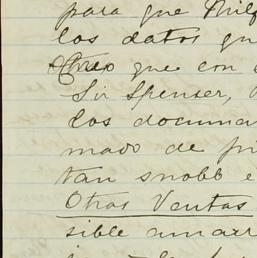 para que Milf
los datos qu
Creo que con
Sir Spenser,
los docume
mado de pr
tan snobb e
Otras Ventas
sible amarr